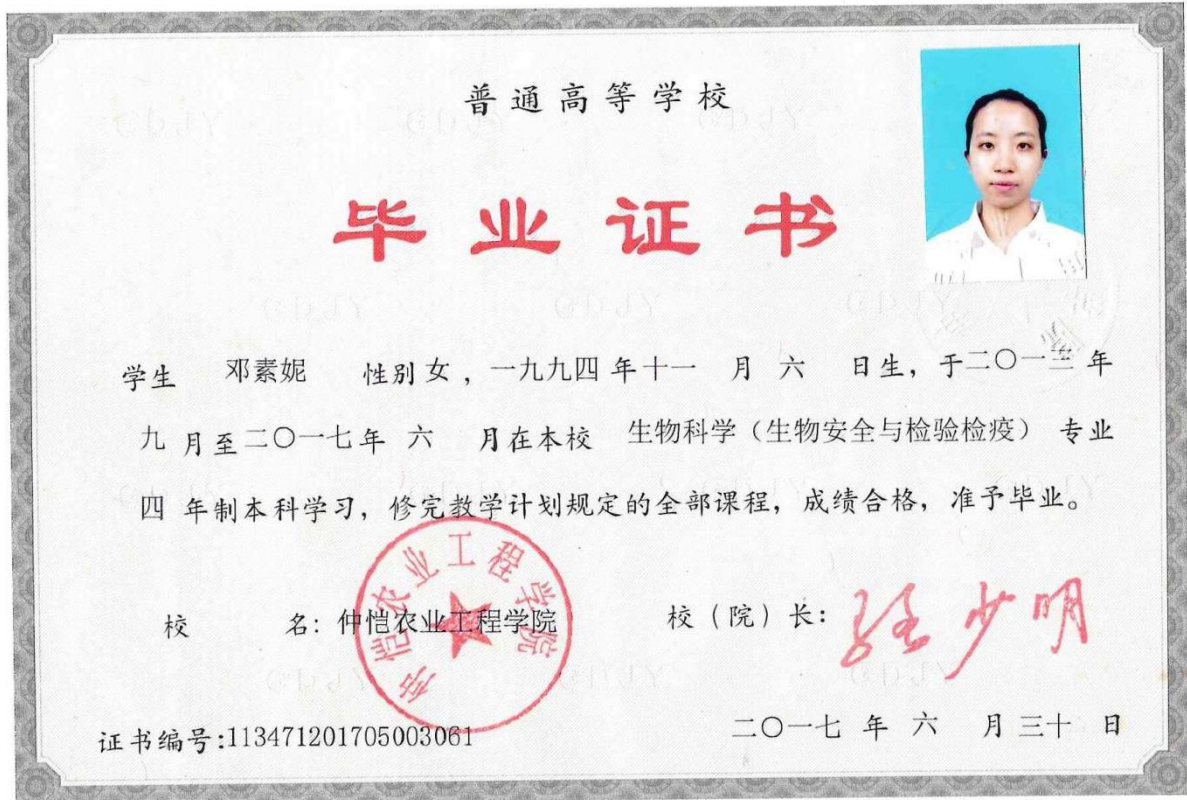 普通高等学校
毕业证书
学生 邓素妮 性别女，一九九四年十一月六日生，于二〇一三年
九月至二〇一七年六月在本校 生物科学（生物安全与检验检疫）专业
四年制本科学习，修完教学计划规定的全部课程，成绩合格，准予毕业。
仲恺农业工程学院
校 名：仲恺农业工程学院 校（院）长：
证书编号:113471201705003061 二〇一七年六月三十日